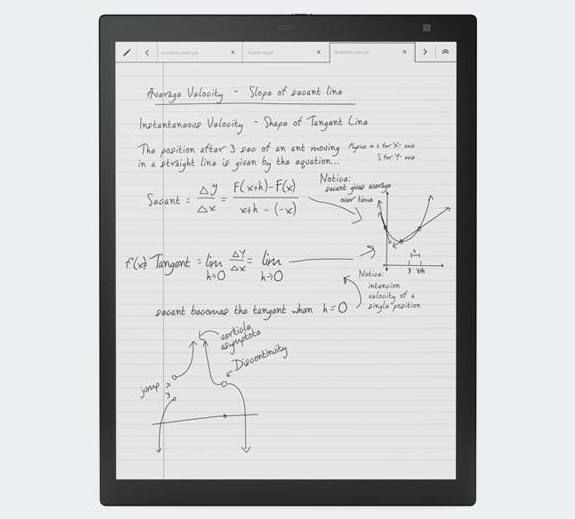 Average Velocity - Slope of secant line
Instantaneous Velocity - Shape of Tangent Line
The position after 3 sec of an ant moving
in a straight line is given by the equation...
Physics = t for X-axis
S for Y-axis
Secant = Δy/Δx = F(x+h)-F(x)/x+h-(-x)
Notice:
secant gives average
over time
f'(x) Tangent = lim h→0 ΔY/Δx = lim h→0
h
x x+h
Notice:
velocity of a
single position
secant becomes the tangent when h=0
verticle
asymptote
Discontinuity
jump